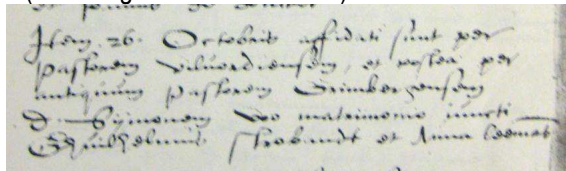 Item 26. Octobris affidati sunt per
pastorem vilvordiensem, et postea per
antiquum pastorem Grimbergensem
d. Sijmonem Wo matrimonio iuncti
Guilhelmus Strobandt et Anna Ceemans